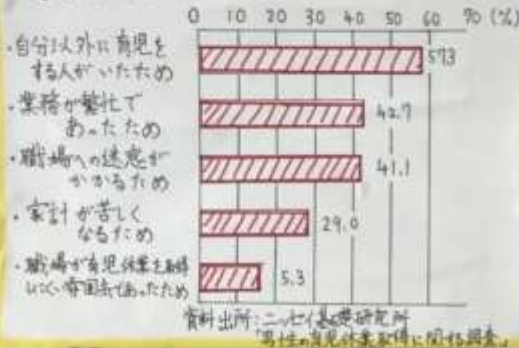 0 10 20 30 40 50 60 70 (%)
・自分以外に育児を
する人がいたため
57.3
・業務が繁忙で
あったため
42.7
・職場への迷惑が
かかるため
41.1
・家計が苦しく
なるため
29.0
・職場が育児休業を取得
しにくい雰囲気であったため
5.3
資料出所:ニッセイ基礎研究所
「男性の育児休業取得に関する調査」